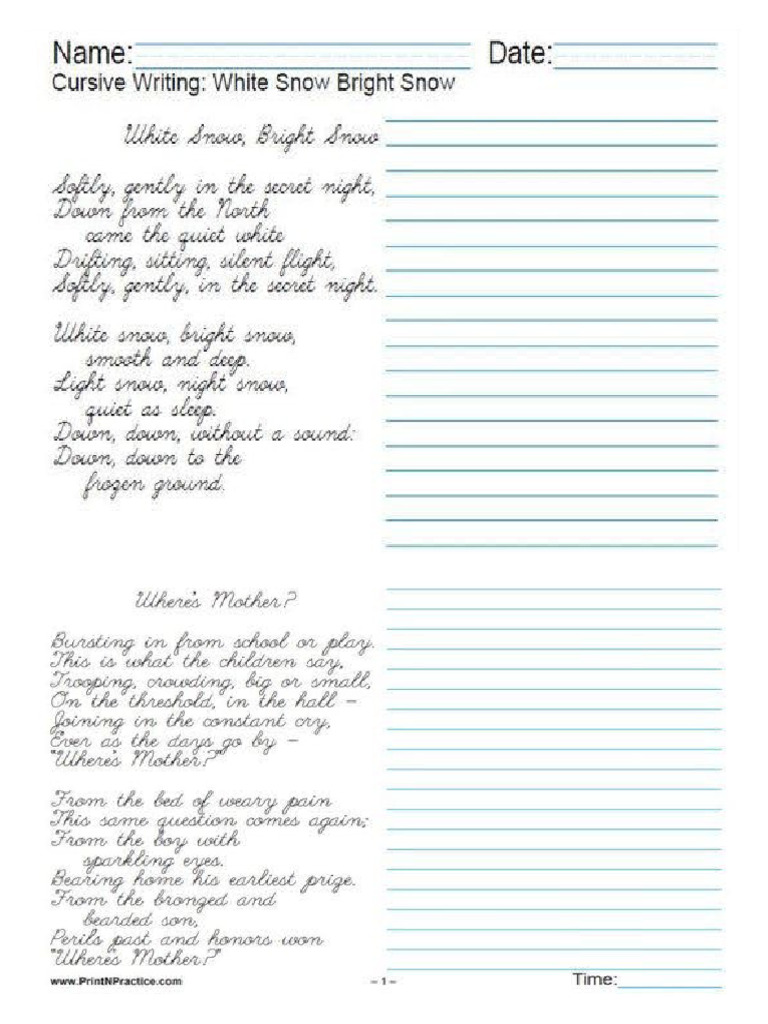 Name: Date:
Cursive Writing: White Snow Bright Snow
White Snow, Bright Snow
Softly, gently in the secret night,
Down from the North
came the quiet white
Drifting, sitting, silent flight,
Softly, gently, in the secret night.
White snow, bright snow,
smooth and deep.
Light snow, night snow,
quiet as sleep.
Down, down, without a sound:
Down, down to the
frozen ground.
Where's Mother?
Bursting in from school or play.
This is what the children say,
Trooping, crowding, big or small,
On the threshold, in the hall –
Joining in the constant cry,
Ever as the days go by –
"Where's Mother?"
From the bed of weary pain
This same question comes again;
From the boy with
sparkling eyes.
Bearing home his earliest prize.
From the bronzed and
bearded son,
Perils past and honors won
"Where's Mother?"
www.PrintNPractice.com – 1 – Time: